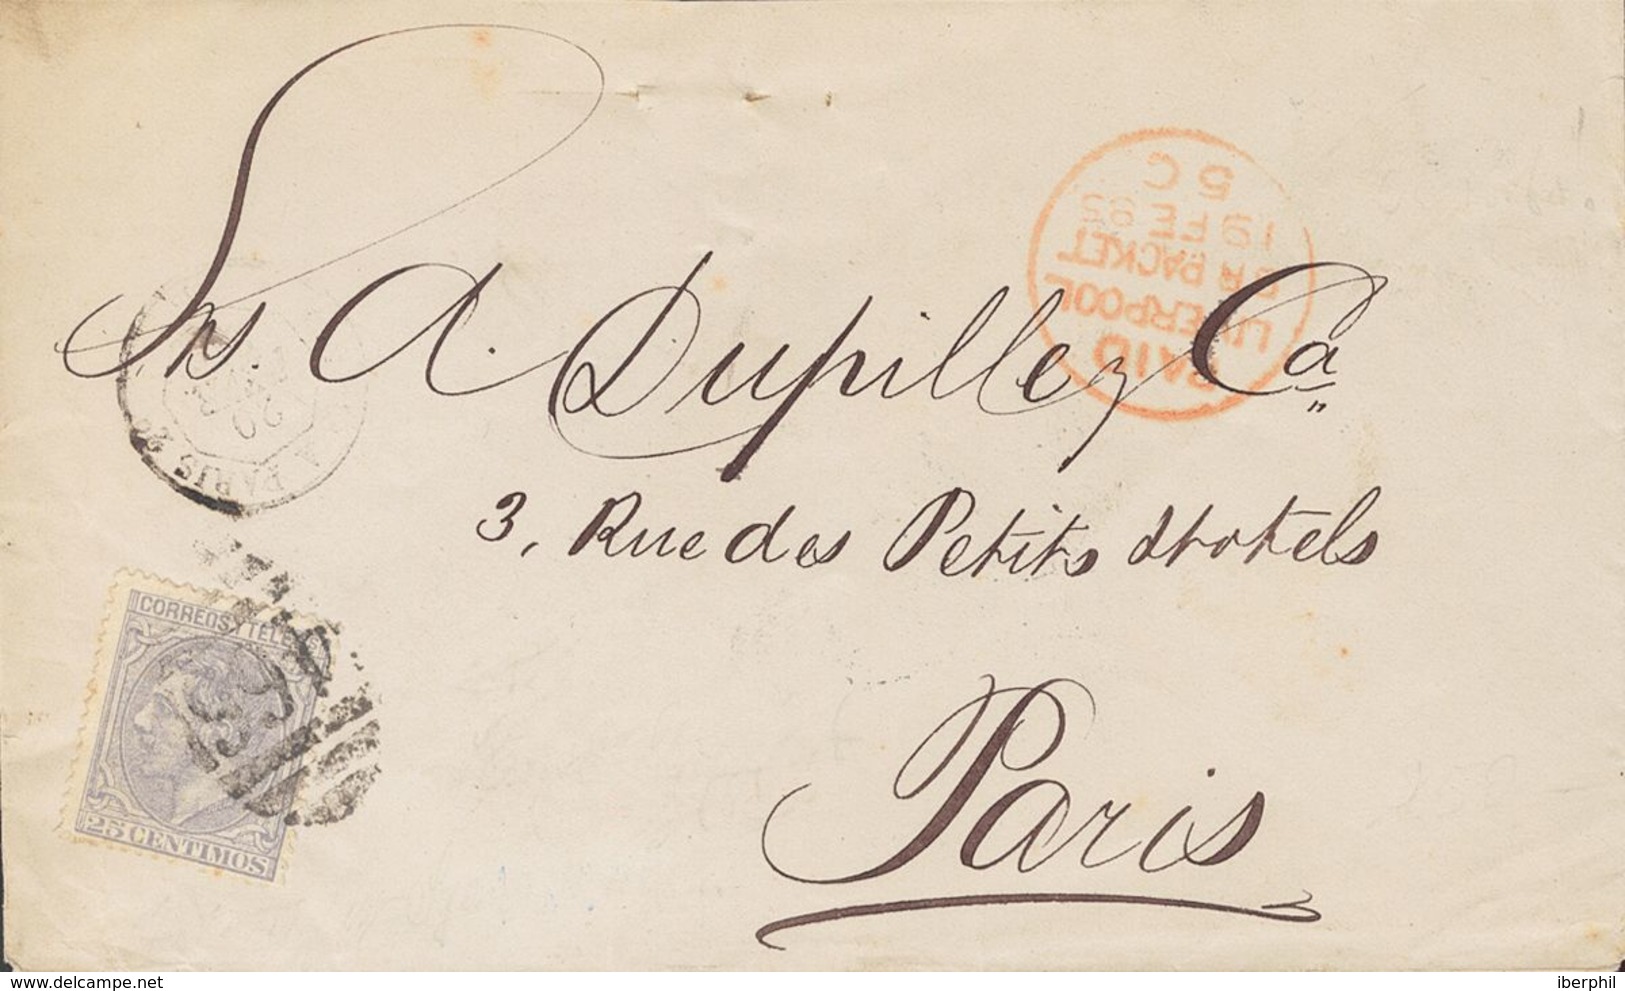 Srs. A. Dupille y Ca
3, Rue des Petits Hotels
Paris
PAID
LIVERPOOL
BR PACKET
19 FE 82
5 C
20
PARIS
CORREOS Y TELE
25 CENTIMOS
www.delcampe.net
iberphil